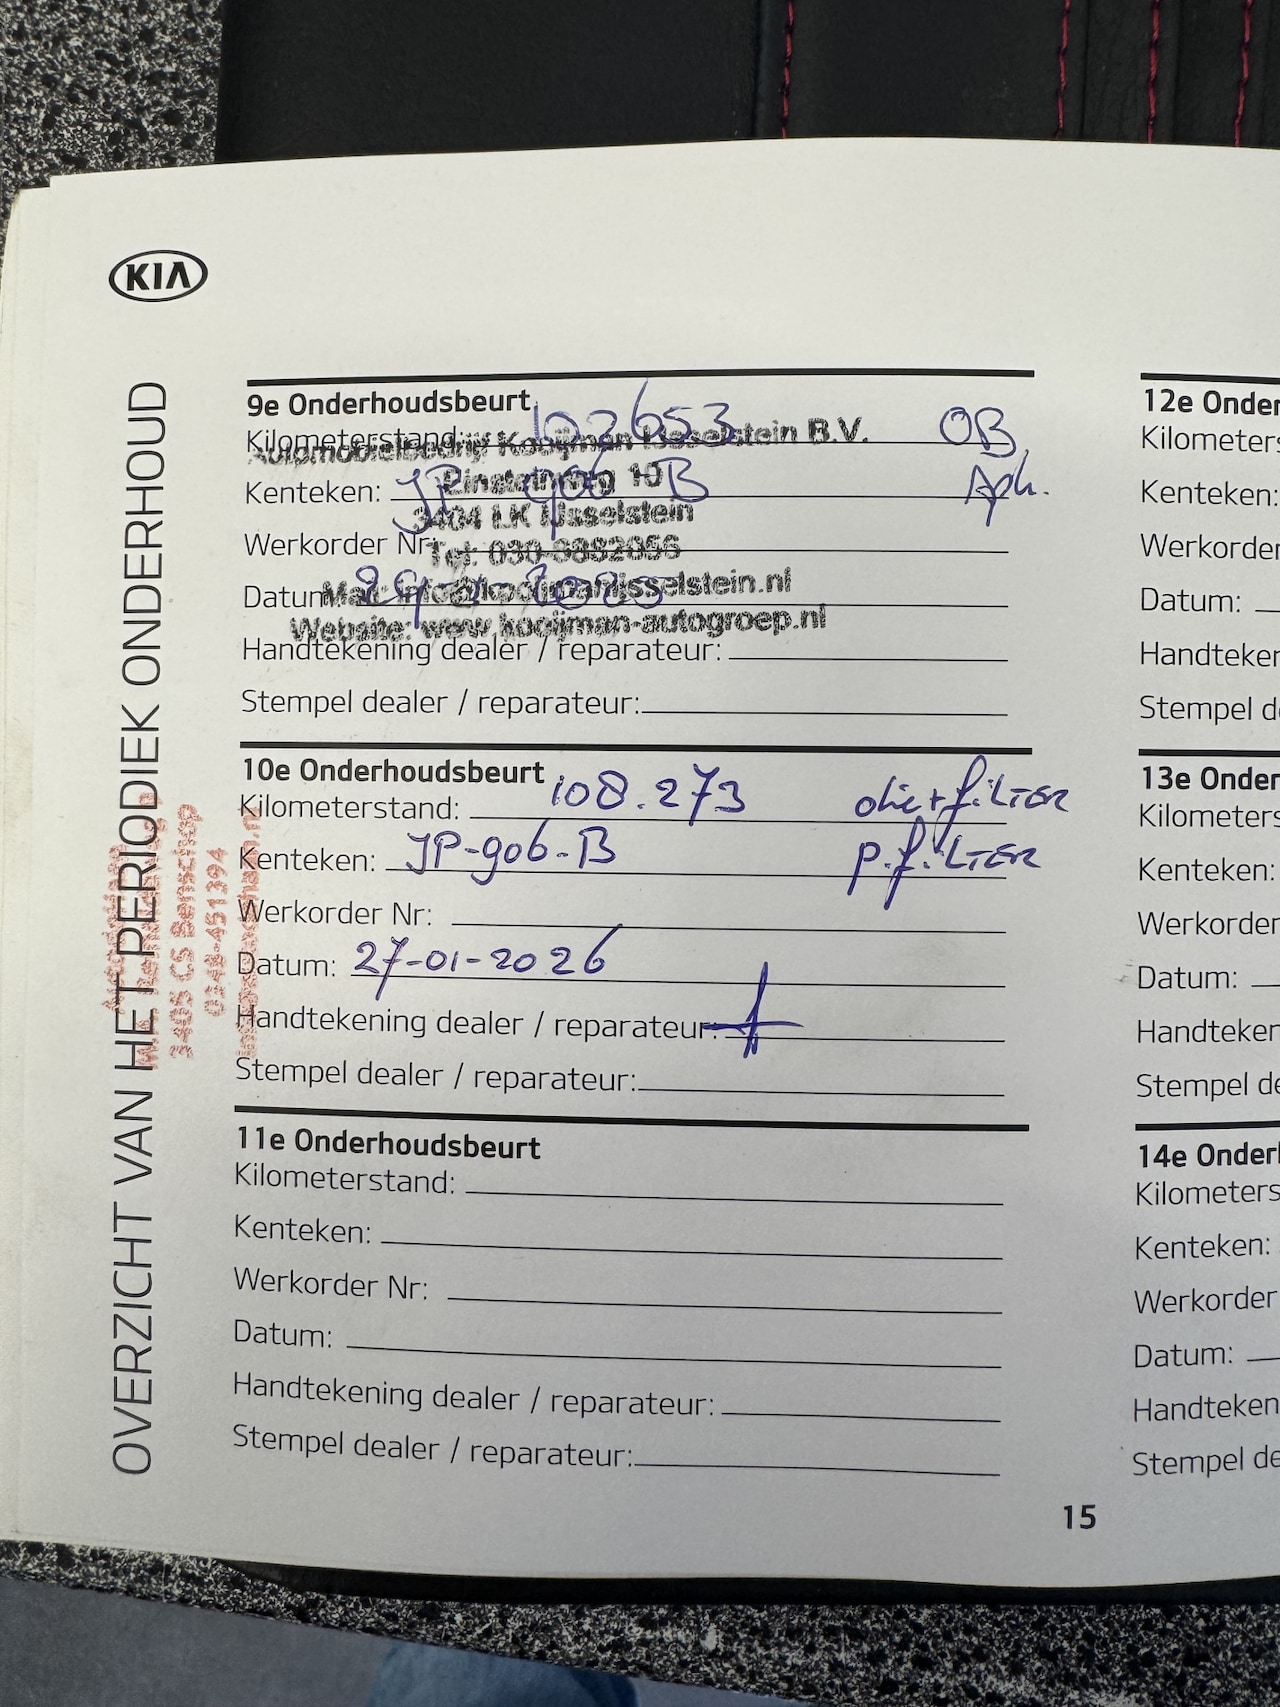 KIA
OVERZICHT VAN HET PERIODIEK ONDERHOUD
9e Onderhoudsbeurt
Kilometerstand: 102653 OB
Automobielbedrijf Kooijman IJsselstein B.V.
Kenteken: JP 906 B Apk.
Einsteinweg 10
3404 LK IJsselstein
Werkorder Nr:
Tel: 030-6882056
Datum:
Mail: info@kooijmanijsselstein.nl
Website: www.kooijman-autogroep.nl
Handtekening dealer / reparateur:
Stempel dealer / reparateur:
10e Onderhoudsbeurt
Kilometerstand: 108.273 olie+filter
Kenteken: JP-906-B p.filter
Werkorder Nr:
Datum: 27-01-2026
Handtekening dealer / reparateur:
Stempel dealer / reparateur:
3405 CS Benschop
0348-451394
11e Onderhoudsbeurt
Kilometerstand:
Kenteken:
Werkorder Nr:
Datum:
Handtekening dealer / reparateur:
Stempel dealer / reparateur:
12e Onder
Kilometers
Kenteken:
Werkorder
Datum:
Handteken
Stempel de
13e Onder
Kilometers
Kenteken:
Werkorder
Datum:
Handteken
Stempel de
14e Onder
Kilometers
Kenteken:
Werkorder
Datum:
Handteken
Stempel de
15